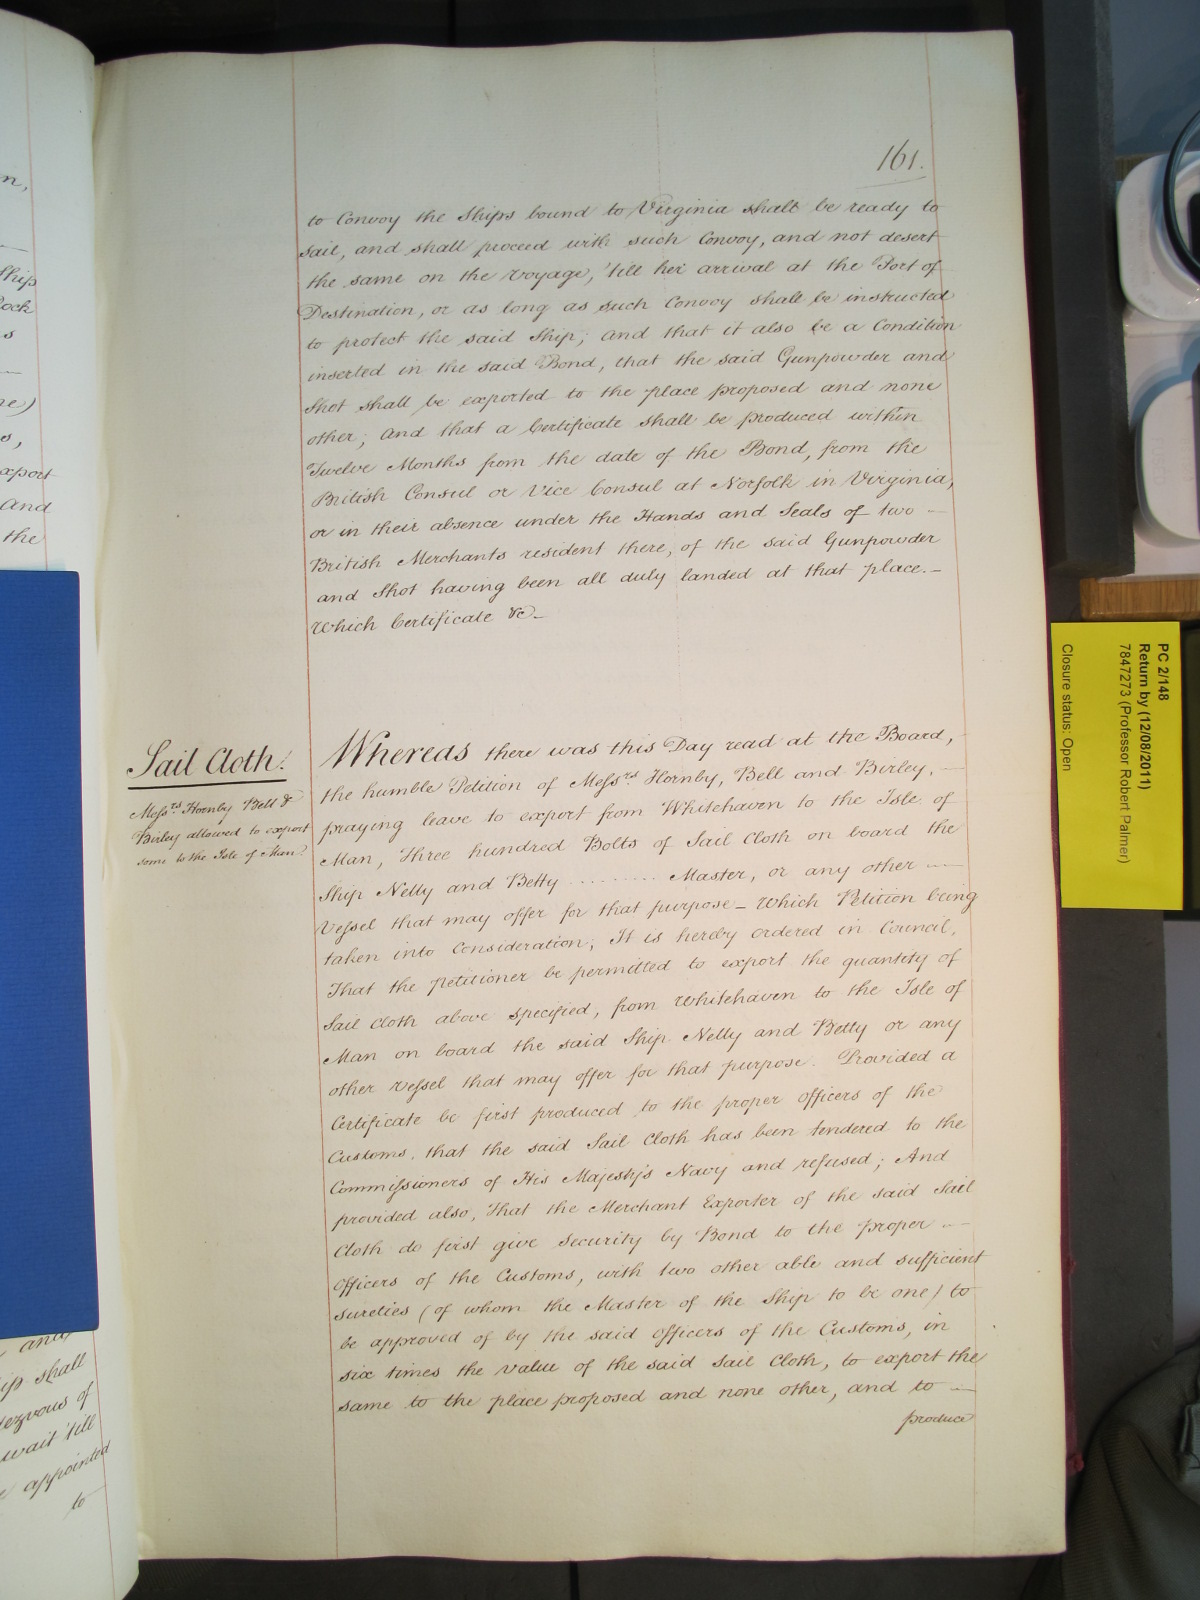 n,
Ship
s
ne)
export
and
the
and
ip shall
dezvous of
wait 'till
appointed
to
161.
to Convoy the Ships bound to Virginia shall be ready to
sail, and shall proceed with such Convoy, and not desert
the same on the voyage, 'till her arrival at the Port of
Destination, or as long as such Convoy shall be instructed
to protect the said Ship; and that it also be a Condition
inserted in the said Bond, that the said Gunpowder and
Shot shall be exported to the place proposed and none
other; And that a Certificate shall be produced within
Twelve Months from the date of the Bond, from the
British Consul or Vice Consul at Norfolk in Virginia,
or in their absence under the Hands and Seals of two —
British Merchants resident there, of the said Gunpowder
and Shot having been all duly landed at that place. —
Which Certificate &c —
Sail Cloth.
Messrs. Hornby Bell &
Birley allowed to export
some to the Isle of Man.
Whereas there was this Day read at the Board,
the humble Petition of Messrs. Hornby, Bell and Birley, —
praying leave to export from Whitehaven to the Isle of
Man, Three hundred Bolts of Sail Cloth on board the
Ship Nelly and Betty .......... Master, or any other —
Vessel that may offer for that purpose — Which Petition being
taken into Consideration; It is hereby ordered in Council,
That the petitioner be permitted to export the quantity of
Sail Cloth above specified, from Whitehaven to the Isle of
Man on board the said Ship Nelly and Betty or any
other Vessel that may offer for that purpose. Provided a
Certificate be first produced to the proper Officers of the
Customs, that the said Sail Cloth has been tendered to the
Commissioners of His Majesty's Navy and refused; And
provided also, That the Merchant Exporter of the said Sail
Cloth do first give Security by Bond to the proper —
Officers of the Customs, with two other able and sufficient
sureties (of whom the Master of the Ship to be one) to
be approved of by the said Officers of the Customs, in
six times the value of the said Sail Cloth, to export the
same to the place proposed and none other, and to —
produce
PC 2/148
Return by (12/08/2011)
7847273 (Professor Robert Palmer)
Closure status: Open